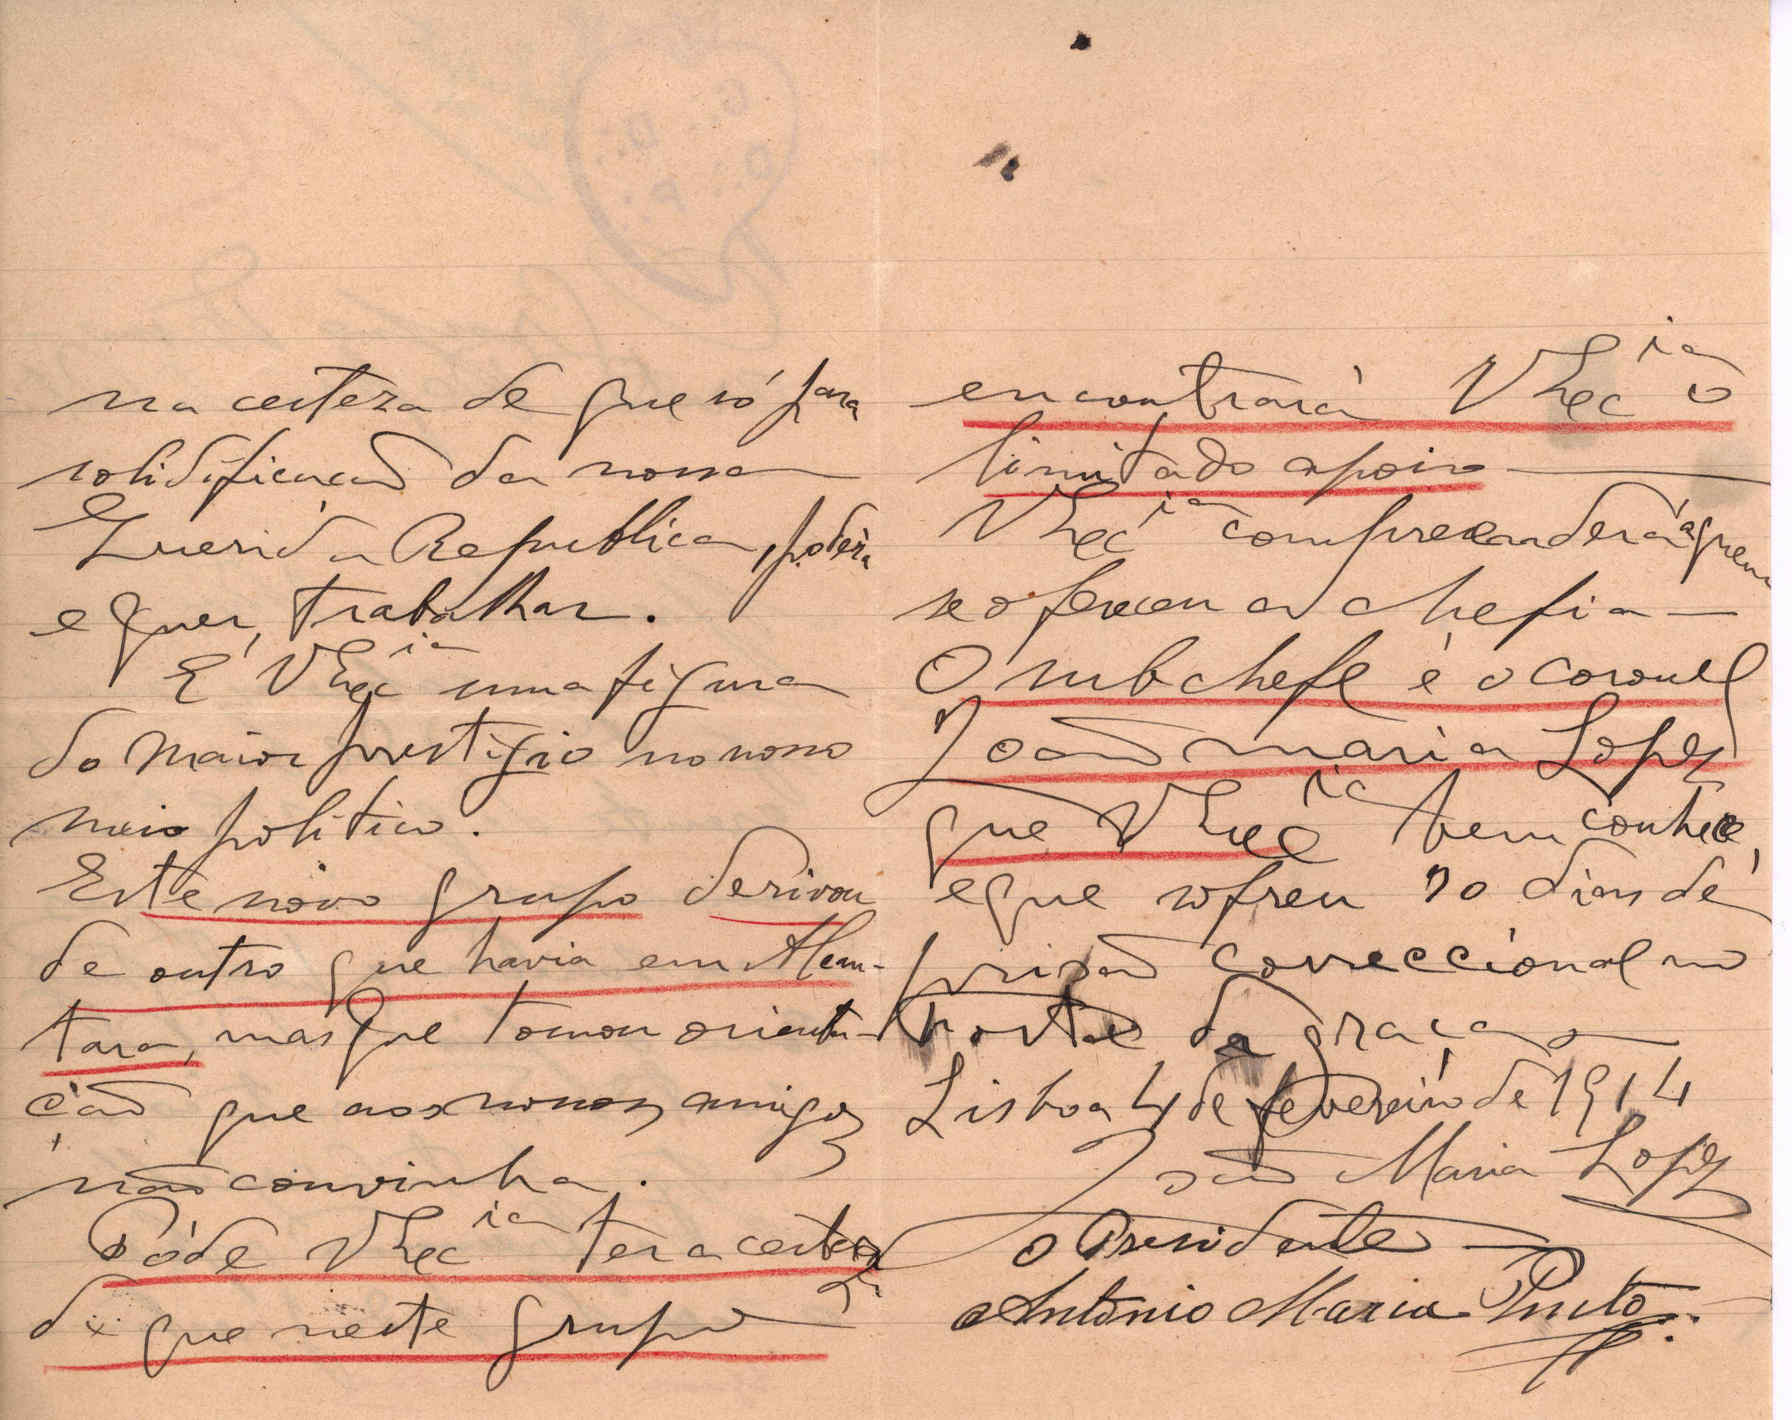 na certeza de que só para
solidificação da nossa
Querida Republica, poderá
e quer, trabalhar.
E' VExc.ia uma figura
do maior prestigio no nosso
meio politico.
Este novo grupo derivou
de outro que havia em Alcan-
tara, mas que tomou orienta-
ção que aos nossos amigos
não convinha.
Póde VExc.ia ter a certeza
de que neste grupo
encontrará VExc.ia o
limitado apoio
VExc.ia compreenderá a quem
se oferecer a chefia
O sub chefe é o coronel
João Maria Lopes
que VExc.ia bem conhece,
e que sofreu 70 dias de
prisão correccional no
Forte da Graça
Lisboa 4 de fevereiro de 1914
João Maria Lopes
O Presidente
Antonio Maria Pinto
G.. D..
D.. P..